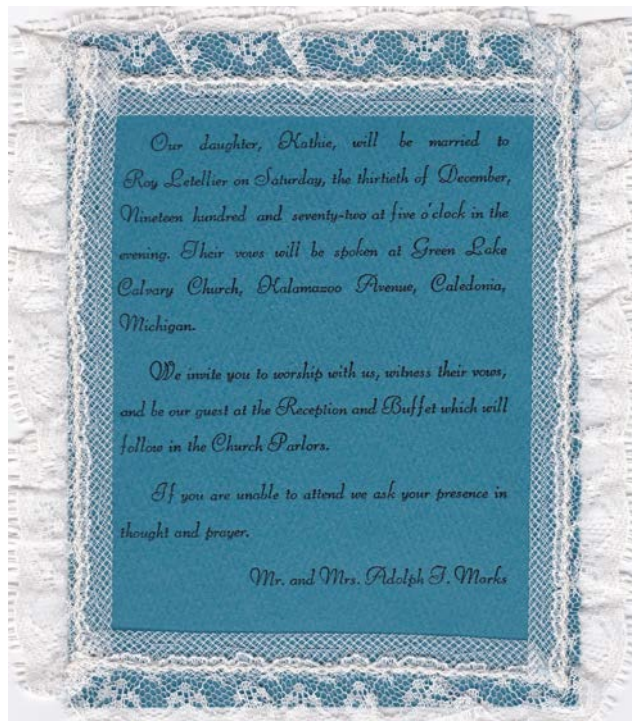 Our daughter, Kathie, will be married to
Roy Letellier on Saturday, the thirtieth of December,
Nineteen hundred and seventy-two at five o'clock in the
evening. Their vows will be spoken at Green Lake
Calvary Church, Kalamazoo Avenue, Caledonia,
Michigan.
We invite you to worship with us, witness their vows,
and be our guest at the Reception and Buffet which will
follow in the Church Parlors.
If you are unable to attend we ask your presence in
thought and prayer.
Mr. and Mrs. Adolph J. Marks